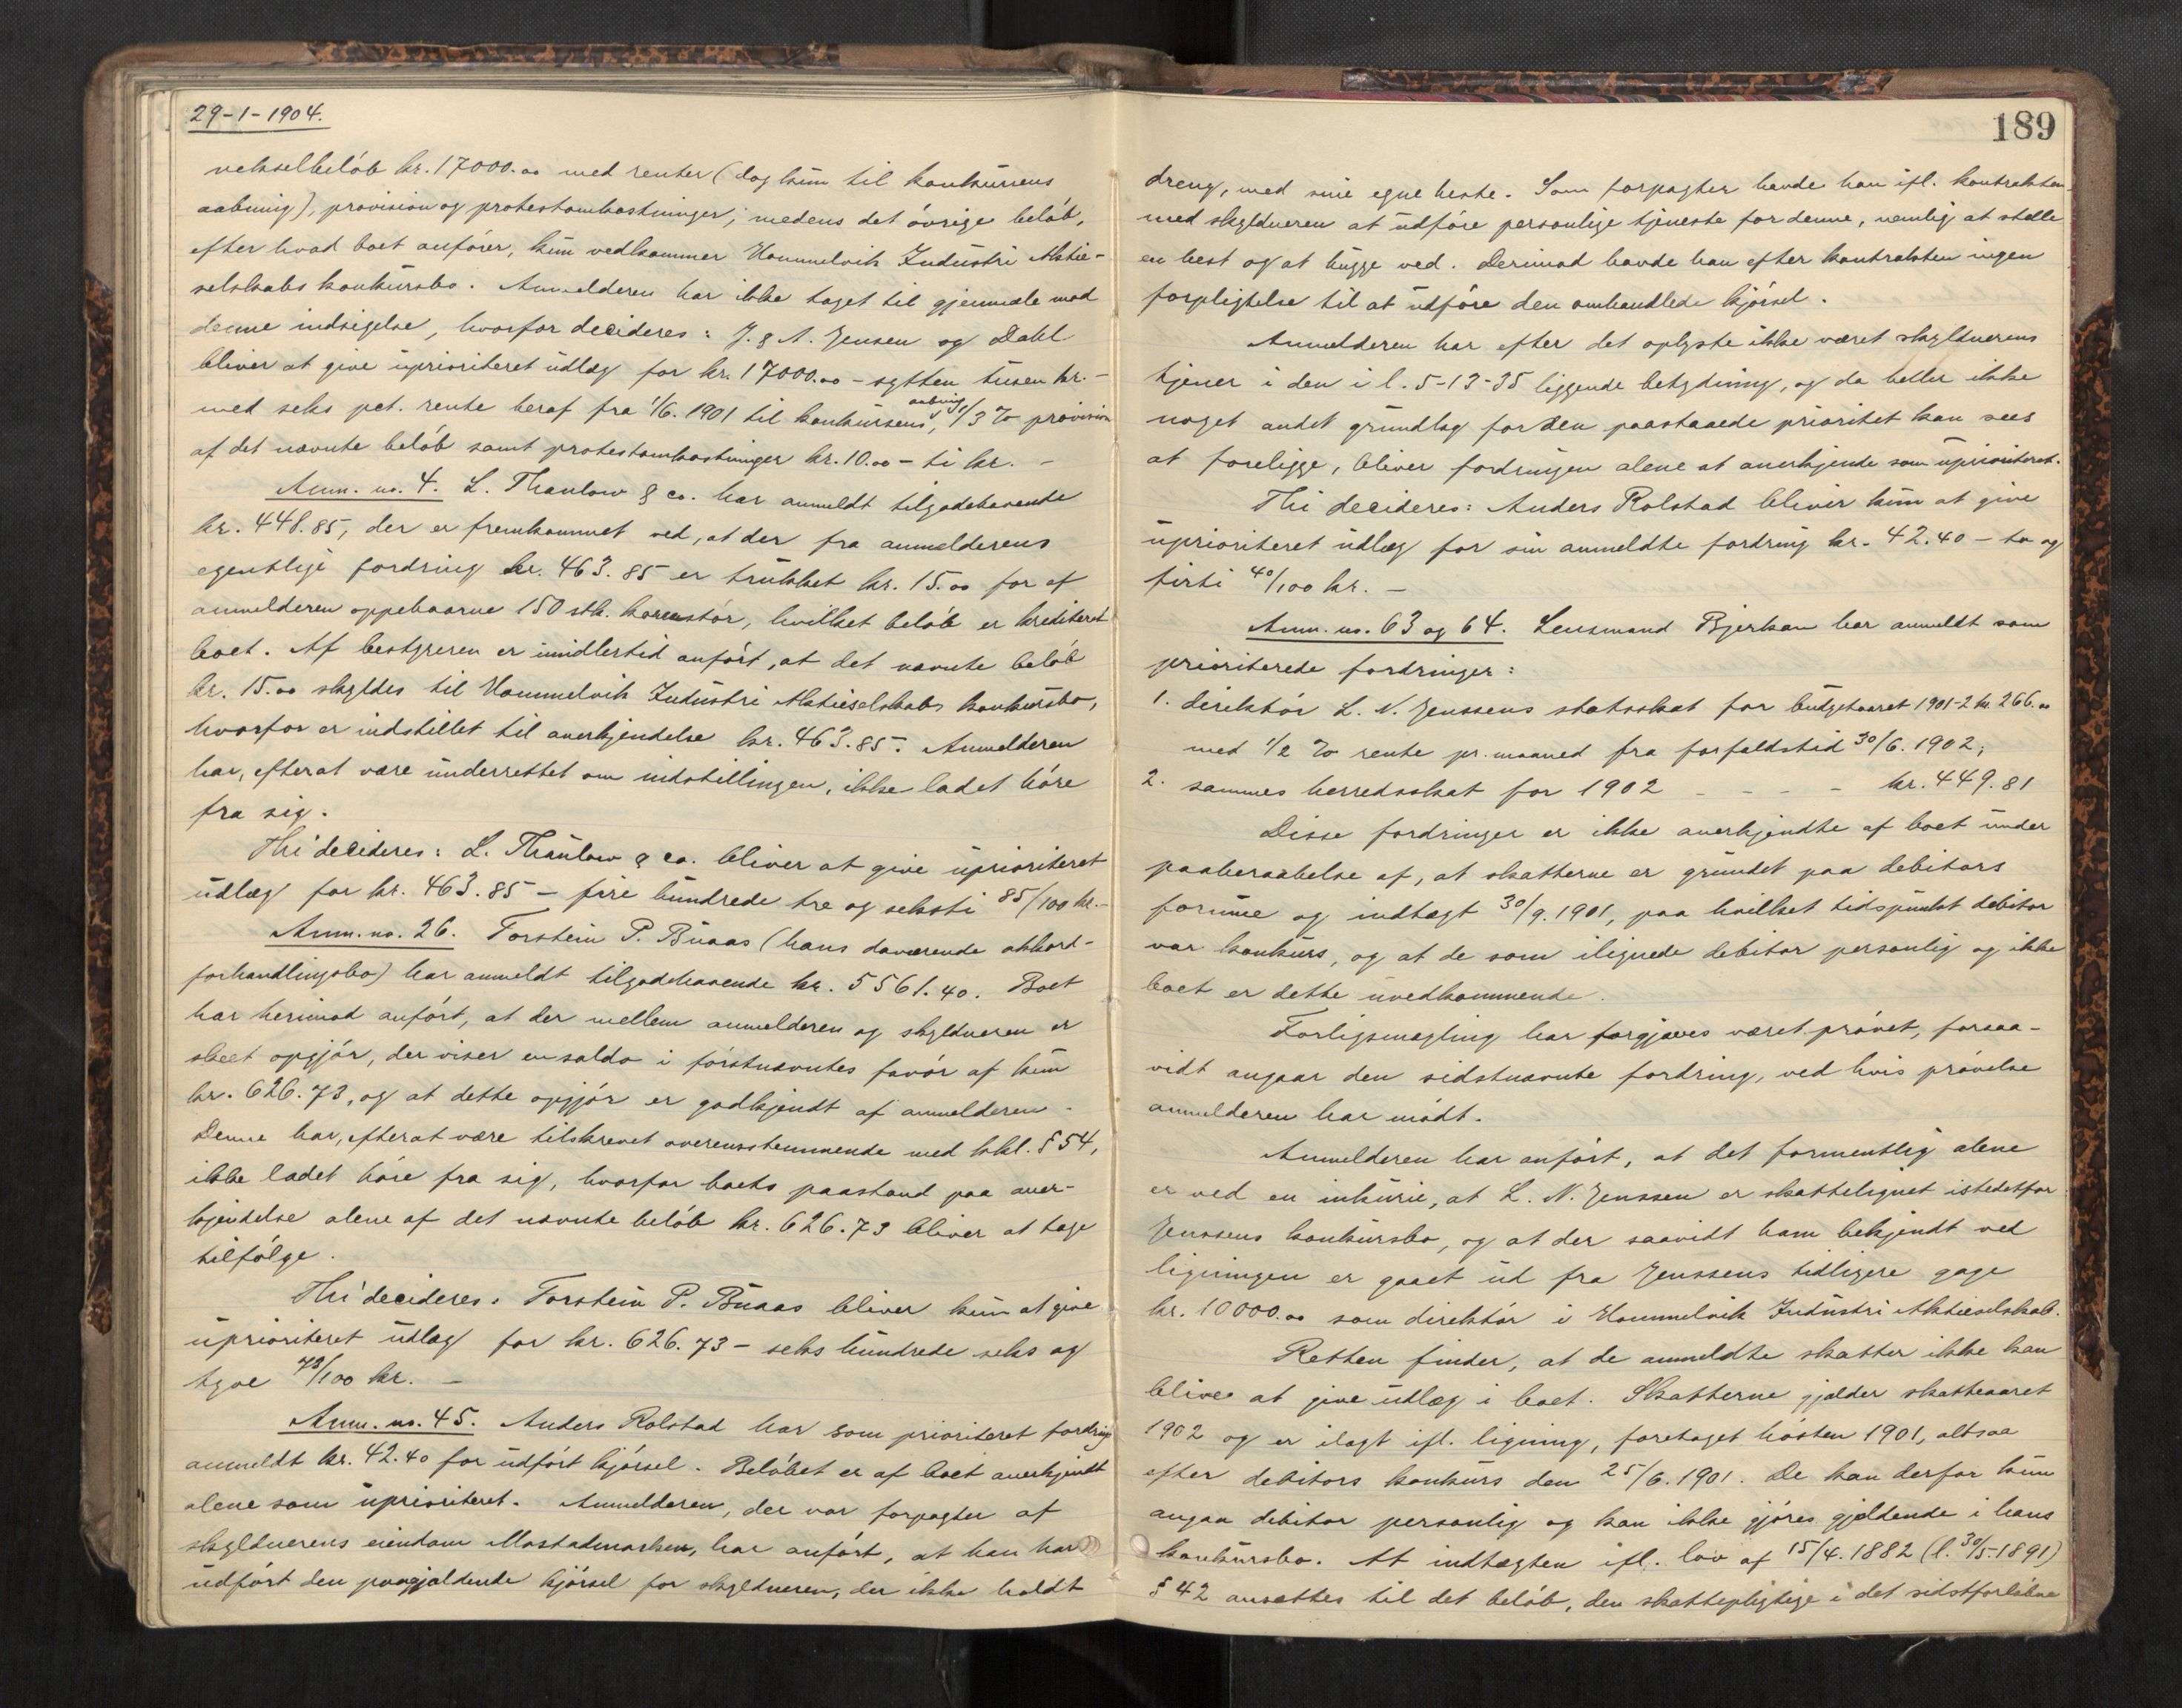 29-1-1904.
vekselbeløb kr. 17000.00 med renter (dog kun til konkursens
aabning), provision og protestomkostninger; medens det øvrige beløb,
efter hvad boet anfører, kun vedkommer Hommelvik Industri Aktie-
selskabs konkursbo. Anmelderen har ikke taget til gjenmæle mod
denne indsigelse, hvorfor decideres: J. & A. Jensen og Dahl
bliver at give uprioriteret udlæg for kr. 17000.00 - sytten tusen kr. -
med seks pct. rente heraf fra 1/6. 1901 til konkursens aabning, 1/3 % provision
af det nævnte beløb samt protestomkostninger kr. 10.00 - ti kr. -
Anm. no. 4. L. Thaulow & co. har anmeldt tilgodehavende
kr. 448.85, der er fremkommet ved, at der fra anmelderens
egentlige fordring kr. 463.85 er trukket kr. 15.00 for af
anmelderen oppebaarne 150 stk. kornstør, hvilket beløb er krediteret
boet. Af bestyreren er imidlertid anført, at det nævnte beløb
kr. 15.00 skyldes til Hommelvik Industri Aktieselskabs konkursbo,
hvorfor er indstillet til anerkjendelse kr. 463.85. Anmelderen
har, efterat være underrettet om indstillingen, ikke ladet høre
fra sig.
Thi decideres: L. Thaulow & co. bliver at give uprioriteret
udlæg for kr. 463.85 - fire hundrede tre og seksti 85/100 kr. -
Anm. no. 26. Torstein P. Buaas (hans daværende akkord-
forhandlingsbo) har anmeldt tilgodehavende kr. 5561.40. Boet
har herimod anført, at der mellem anmelderen og skyldneren er
skeet opgjør, der viser en saldo i førstnævntes favør af kun
kr. 626.73, og at dette opgjør er godkjendt af anmelderen.
Denne har, efterat være tilskrevet overensstemmende med kkl. § 54,
ikke ladet høre fra sig, hvorfor boets paastand paa aner-
kjendelse alene af det nævnte beløb kr. 626.73 bliver at tage
tilfølge.
Thi decideres: Torstein P. Buaas bliver kun at give
uprioriteret udlæg for kr. 626.73 - seks hundrede seks og
tyve 73/100 kr. -
Anm. no. 45. Anders Rolstad har som prioriteret fordring
anmeldt kr. 42.40 for udført kjørsel. Beløbet er af boet anerkjendt
alene som uprioriteret. Anmelderen, der var forpagter af
skyldnerens eiendom Mostadmarken, har anført, at han har
udført den paagjældende kjørsel for skyldneren, der ikke holdt
189
dreng, med sine egne heste. Som forpagter havde han ifl. kontrakten
med skyldneren at udføre personlige tjeneste for denne, nemlig at stelle
en hest og at hugge ved. Derimod havde han efter kontrakten ingen
forpligtelse til at udføre den omhandlede kjørsel.
Anmelderen har efter det oplyste ikke været skyldnerens
tjener i den i l. 5-13-35 liggende betydning, og da heller ikke
noget andet grundlag for den paastaaede prioritet kan sees
at foreligge, bliver fordringen alene at anerkjende som uprioriteret.
Thi decideres: Anders Rolstad bliver kun at give
uprioriteret udlæg for sin anmeldte fordring kr. 42.40 - to og
firti 40/100 kr. -
Anm. no. 63 og 64. Lensmand Bjerkan har anmeldt som
prioriterede fordringer:
1. direktør L. N. Jenssens statsskat for budgetaaret 1901-2 kr. 266.00
med 1/2 % rente pr. maaned fra forfaldstid 30/6. 1902;
2. sammes herredsskat for 1902 - - - - kr. 449.81
Disse fordringer er ikke anerkjendte af boet under
paaberaabelse af, at skatterne er grundet paa debitors
formue og indtægt 30/9. 1901, paa hvilket tidspunkt debitor
var konkurs, og at de som ilignede debitor personlig og ikke
boet er dette uvedkommende.
Forligsmægling har forgjæves været prøvet, forsaa-
vidt angaar den sidstnævnte fordring, ved hvis prøvelse
anmelderen har mødt.
Anmelderen har anført, at det formentlig alene
er ved en inkurie, at L. N. Jenssen er skattelignet istedetfor
Jenssens konkursbo, og at der saavidt ham bekjendt ved
ligningen er gaaet ud fra Jenssens tidligere gage
kr. 10000.00 som direktør i Hommelvik Industri Aktieselskab.
Retten finder, at de anmeldte skatter ikke kan
blive at give udlæg i boet. Skatterne gjælder skatteaaret
1902 og er ilagt ifl. ligning, foretaget høsten 1901, altsaa
efter debitors konkurs den 25/6. 1901. De kan derfor kun
angaa debitor personlig og kan ikke gjøres gjældende i hans
konkursbo. At indtægten ifl. lov af 15/4. 1882 (l. 30/5. 1891)
§ 42 ansættes til det beløb, den skattepligtige i det sidstforløbne